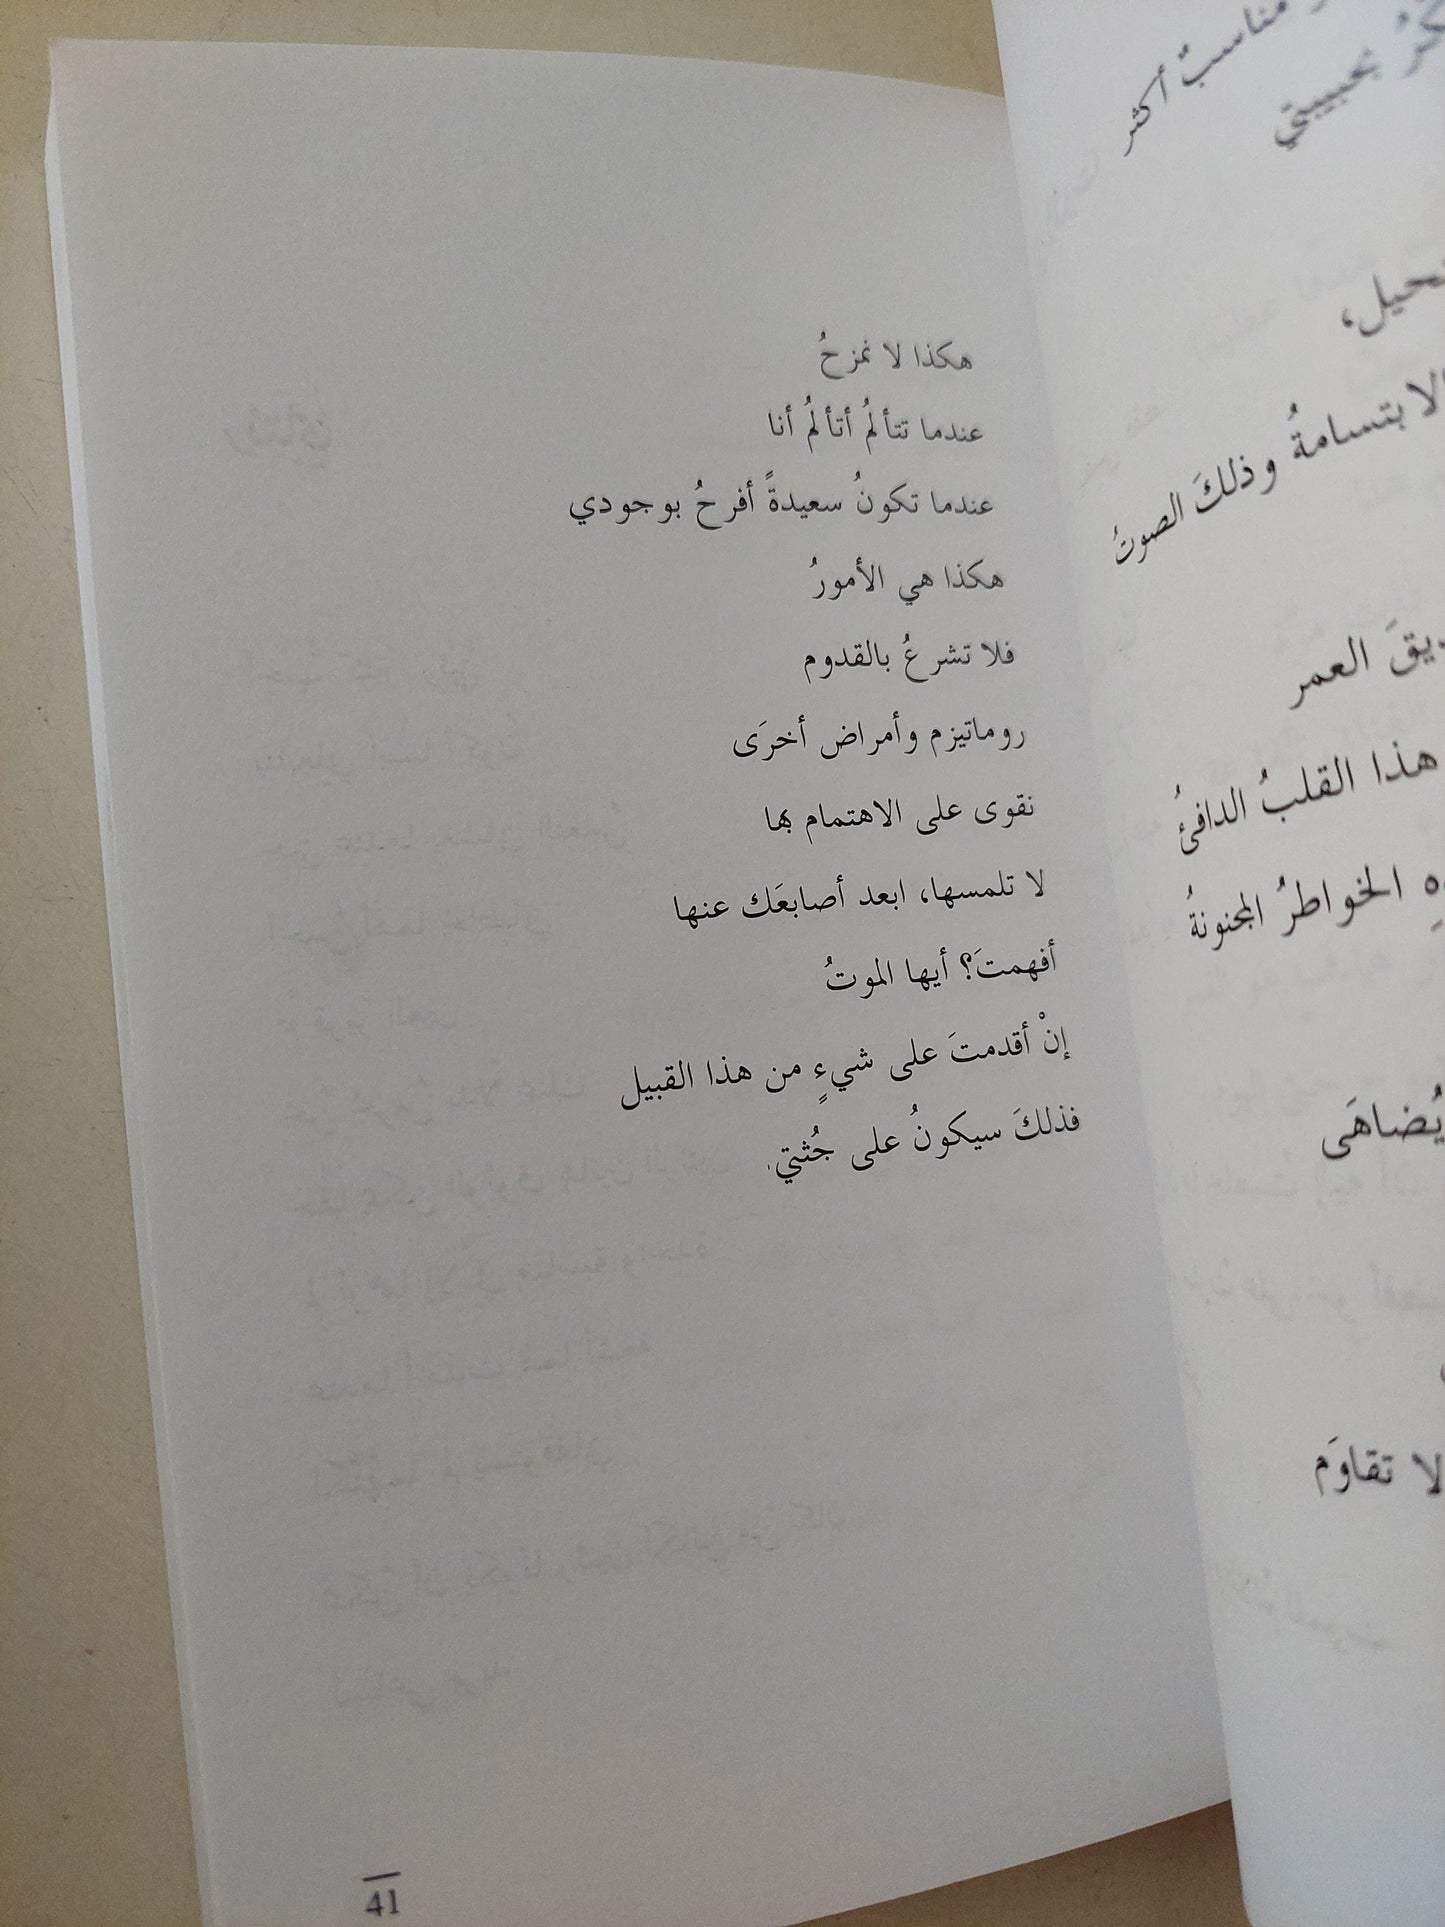 مناسبٌ أكثر
بحبيبتي
الابتسامةُ وذلكَ الصوتُ
العمر
هذا القلبُ الدافئُ
الخواطرُ المجنونةُ
يُضاهَى
لا تقاوَم
هكذا لا نمزحُ
عندما تتألمُ أتألمُ أنا
عندما تكونُ سعيدةً أفرحُ بوجودي
هكذا هي الأمورُ
فلا تشرعُ بالقدوم
روماتيزم وأمراض أخرَى
نقوى على الاهتمام بها
لا تلمسها، ابعد أصابعَك عنها
أفهمتَ؟ أيها الموتُ
إنْ أقدمتَ على شيءٍ من هذا القبيل
فذلكَ سيكونُ على جُثتي.
41